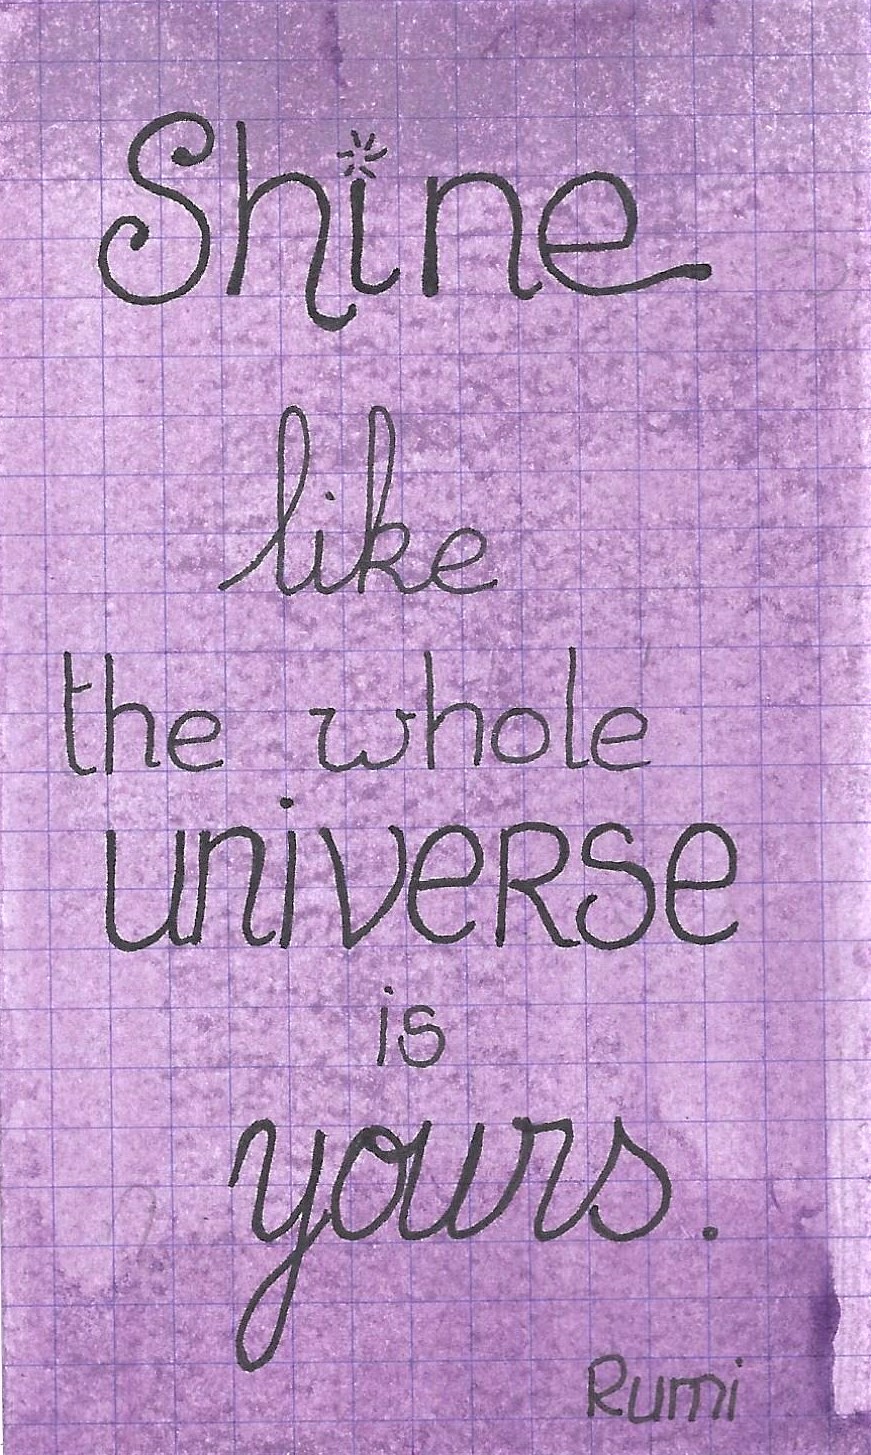 Shine
like
the whole
universe
is
yours.
Rumi